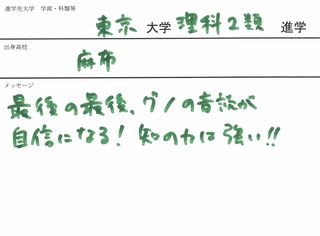 進学先大学 学部・科類等
東京 大学 理科2類 進学
出身高校
麻布
メッセージ
最後の最後、グノの音読が
自信になる! 知の力は強い!!